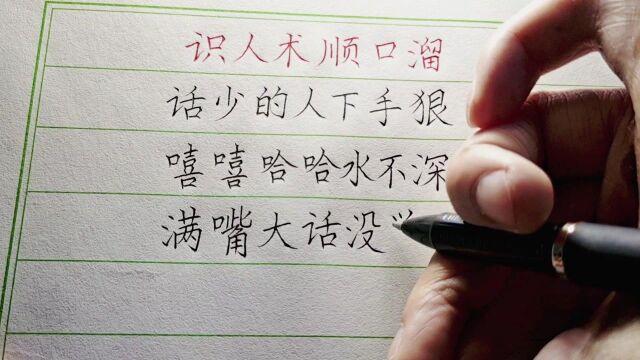 识人术顺口溜
话少的人下手狠
嘻嘻哈哈水不深
满嘴大话没